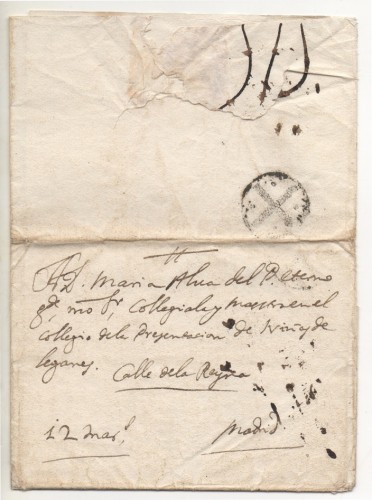 A D. Maria Alva del P. eterno
gde. mo. Sr. Collegiala y maestra en el
collegio de la Presentacion de Niñas de
leganes.
Calle de la Reyna
12 Mars.
Madrid